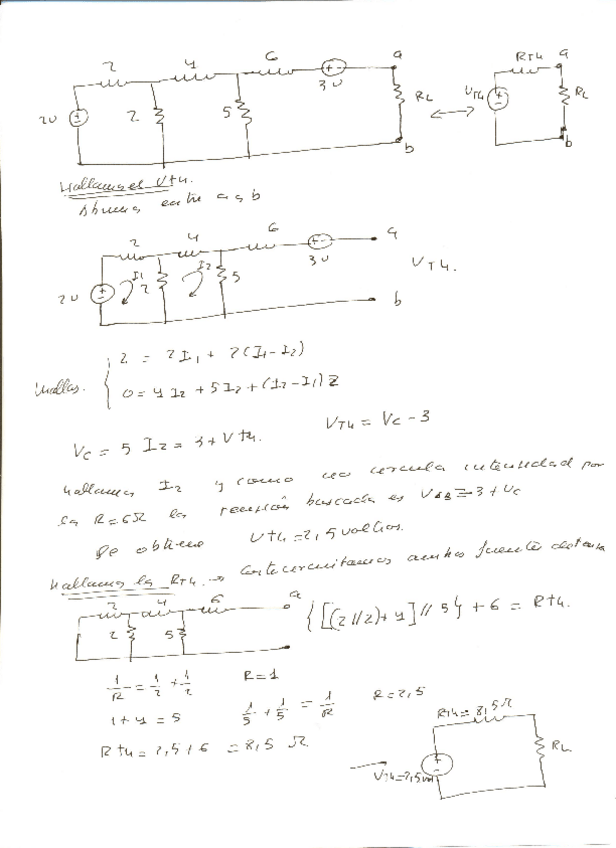 2 4 6 a RTh a
2v 2 5 + - 3v RL b VTh + - RL b
Hallamos el Vth.
Abrimos entre a y b
2 4 6 a
2v I1 2 I2 5 + - 3v b VTh.
mallas. { 2 = 2I1 + 2(I1-I2)
0 = 4I2 + 5I2 + (I2-I1)2
Vc = 5 I2 = 3 + Vth. VTh = Vc - 3
hallamos I2 y como no circula intensidad por
la R=6Ω la tensión buscada es VAB = 3 + Vc
Se obtiene Vth = 2,5 voltios.
Hallamos la RTh. → cortocircuitamos ambas fuentes
2 4 6 a
2 5 { [(2//2)+4]//5} + 6 = Rth.
1/R = 1/2 + 1/2 R = 1
1+4 = 5 1/5 + 1/5 = 1/R R = 2,5
Rth = 2,5 + 6 = 8,5 Ω
Rth = 8,5Ω
VTh = 2,5 + - RL